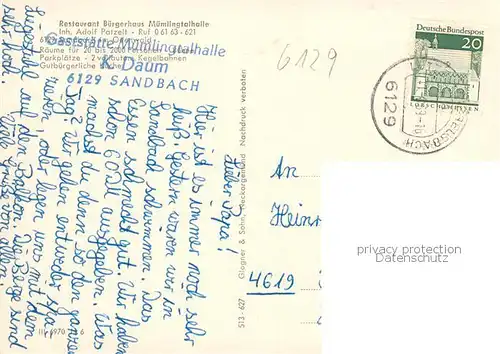 Restaurant Bürgerhaus Mümlingtalhalle
Inh. Adolf Patzelt - Ruf 0 61 63 - 621
Räume für 20 bis 2000 Personen
Parkplätze - 2 Kegelbahnen
Gutbürgerliche Küche
Gaststätte Mümlingtalhalle
K. Daum
6129 SANDBACH
6129
Deutsche Bundespost
20
LORSCH/HESSEN
6129
Lieber Papa!
Hier ist es immer noch sehr
heiß. Gestern waren wir in
Sandbach schwimmen. Das
Essen schmeckt gut. Wir haben
schon 60 DM ausgegeben. Was
machst du denn den ganzen
Tag? Wir gehen entweder spa-
zieren, oder legen uns mit dem
Liegestuhl auf den Balkon. Die Berge sind
sehr hoch. Viele Grüße von allen.
An
Heinr
4619
Glogner & Sohn, Neckargerach Nachdruck verboten
513 - 627
privacy protection
Datenschutz